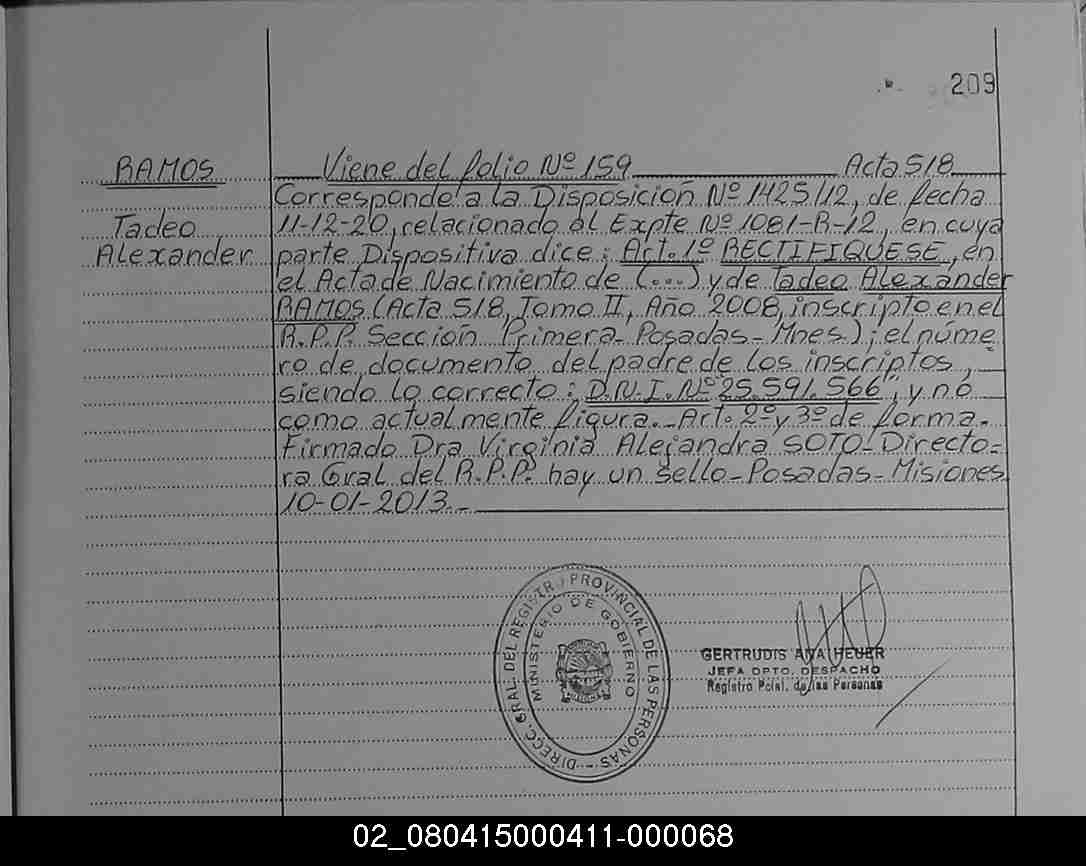 209
RAMOS
Tadeo
Alexander
Viene del folio Nº 159 Acta 518
Corresponde a la Disposición Nº 1425/12, de fecha
11-12-20, relacionado al Expte Nº 1081-R-12, en cuya
parte Dispositiva dice: Art. 1º RECTIFIQUESE, en
el Acta de Nacimiento de (...) y de Tadeo Alexander
RAMOS (Acta 518, Tomo II, Año 2008, inscripto en el
R.P.P. Sección Primera-Posadas-Mnes.); el núme
ro de documento del padre de los inscriptos,
siendo lo correcto: D.N.I. Nº 25.591.566", y no
como actualmente figura.- Art. 2º y 3º de forma.
Firmado Dra Virginia Alejandra SOTO-Directo-
ra Gral del R.P.P. hay un sello-Posadas-Misiones
10-01-2013.-
DIRECC. GRAL. DEL REGISTRO PROVINCIAL DE LAS PERSONAS -
MINISTERIO DE GOBIERNO
GERTRUDIS ANA HEUER
JEFA DPTO. DESPACHO
Registro Pcial. de las Personas
02_080415000411-000068